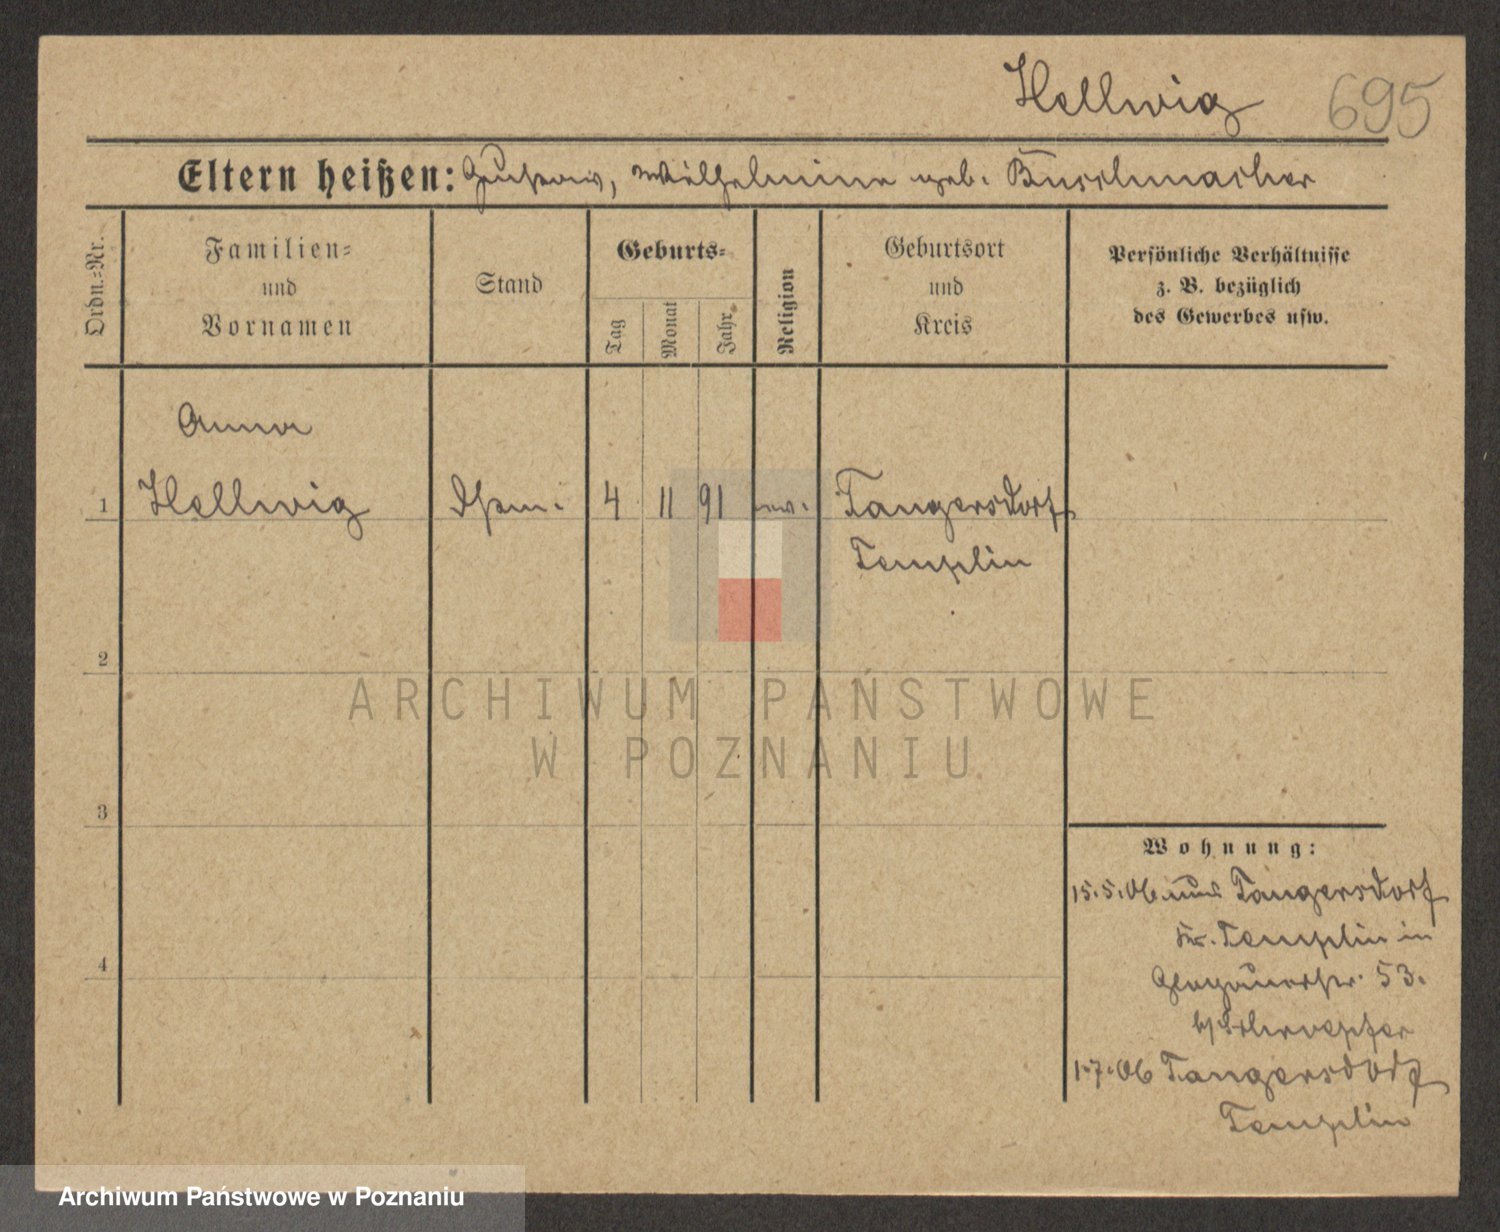 Hellwig 695
Eltern heißen: Gustav, Wilhelmine geb. Buschmacher
Ordn.=Nr.
Familien=
und
Vornamen
Stand
Geburts=
Tag
Monat
Jahr
Religion
Geburtsort
und
Kreis
Persönliche Verhältnisse
z. B. bezüglich
des Gewerbes usw.
Anna
1 Hellwig 4 11 91 ev. Tangersdorf
Templin
2
3
4
Wohnung:
15.5.06 aus Tangersdorf
Kr. Templin in
Glogauerstr. 53.
b/Schroepfer
1.7.06 Tangersdorf
Templin
ARCHIWUM PAŃSTWOWE
W POZNANIU
Archiwum Państwowe w Poznaniu